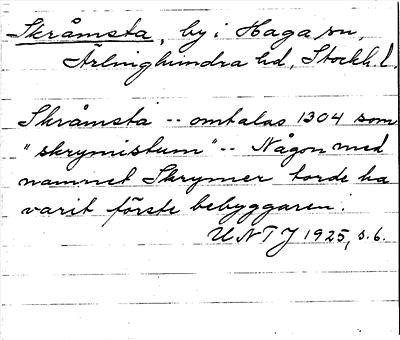 Skråmsta, by i Haga sn,
Ärlinghundra hd, Stockh. l.
Skråmsta -- omtalas 1304 som
"skrymistum" -- Någon med
namnet Skrymer torde ha
varit förste bebyggaren.
UNTJ 1925, s. 6.